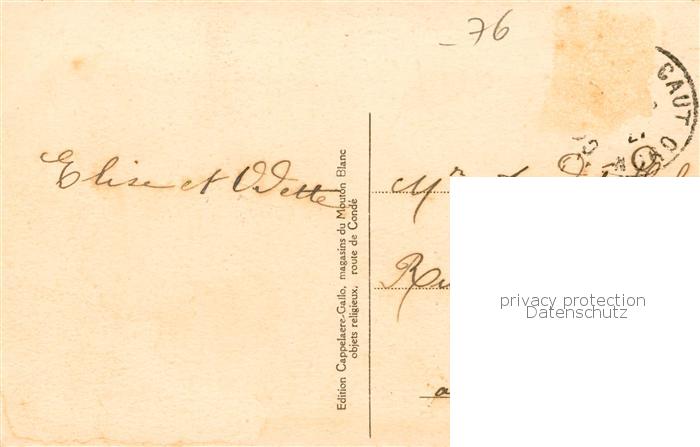 - 76
CAUT
Elise et Odette
Edition Cappelaere-Gallo, magasins du Mouton Blanc
objets religieux, route de Condé
Mr
a
privacy protection
Datenschutz